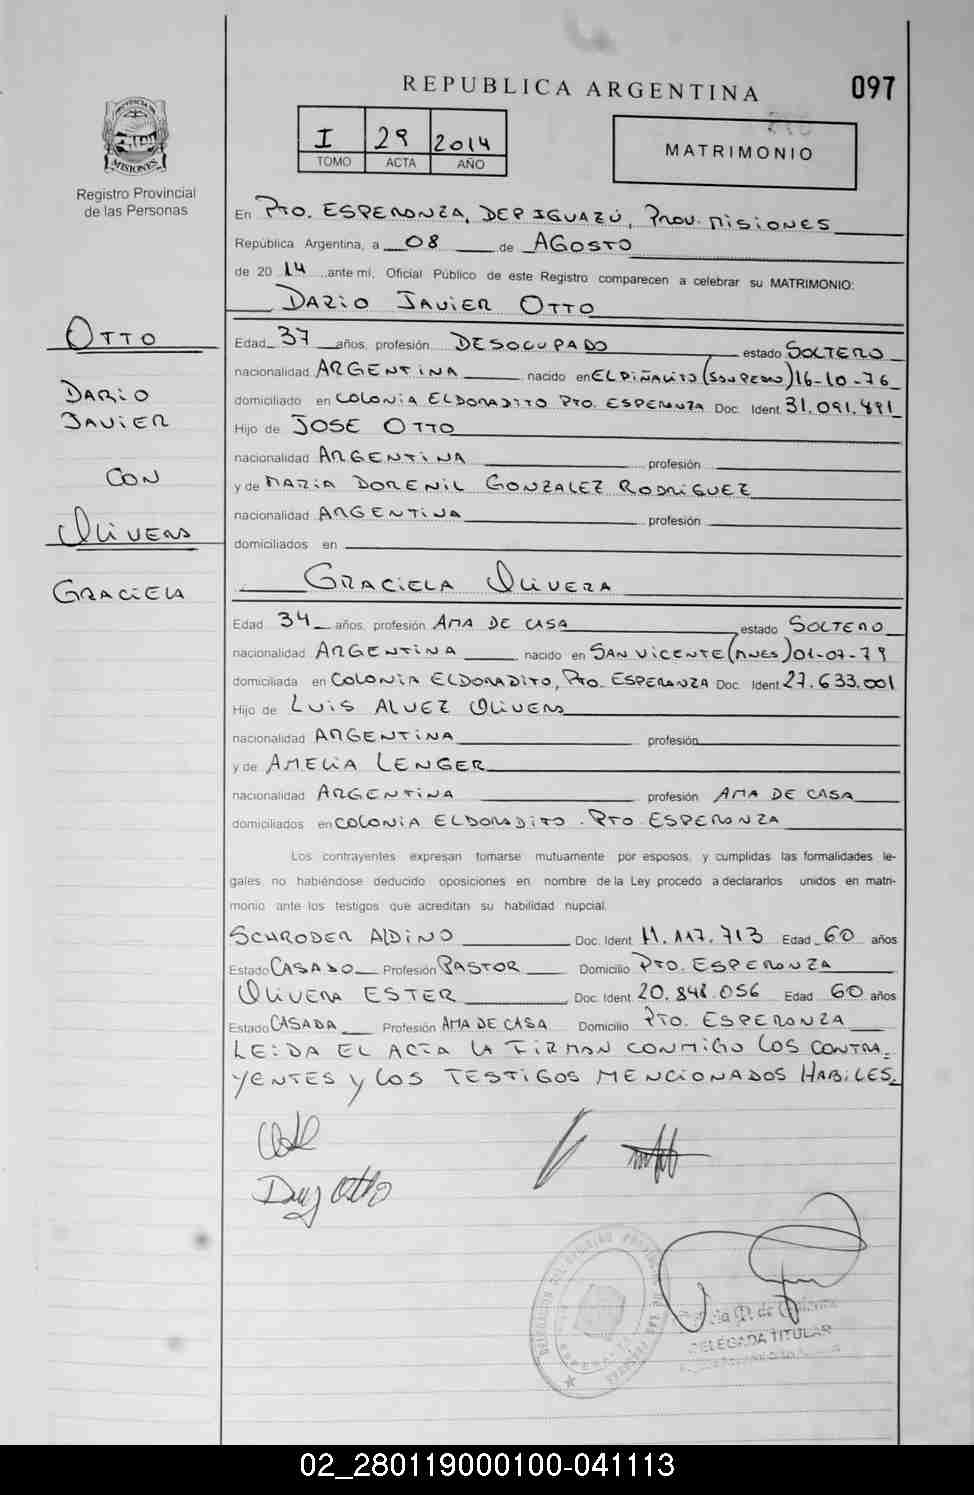 REPUBLICA ARGENTINA
097
I 29 2014
TOMO ACTA AÑO
MATRIMONIO
PROVINCIA DE
MISIONES
Registro Provincial
de las Personas
En Pto. ESPERANZA, DEP IGUAZÚ, Prov. Misiones
República Argentina, a 08 de AGOSTO
de 20 14 ante mí, Oficial Público de este Registro comparecen a celebrar su MATRIMONIO:
DARIO JAVIER OTTO
OTTO
DARIO
JAVIER
CON
OLIVERA
GRACIELA
Edad 37 años, profesión DESOCUPADO estado SOLTERO
nacionalidad ARGENTINA nacido en EL PIÑALITO (SAN PEDRO) 16-10-76
domiciliado en COLONIA ELDORADITO PTO. ESPERANZA Doc. Ident. 31.091.491
Hijo de JOSE OTTO
nacionalidad ARGENTINA profesión
y de MARIA DORENIL GONZALEZ RODRIGUEZ
nacionalidad ARGENTINA profesión
domiciliados en
GRACIELA OLIVERA
Edad 34 años, profesión AMA DE CASA estado SOLTERO
nacionalidad ARGENTINA nacido en SAN VICENTE (MNES) 01-07-79
domiciliada en COLONIA ELDORADITO, PTO. ESPERANZA Doc. Ident. 27.633.001
Hijo de LUIS ALVEZ OLIVERA
nacionalidad ARGENTINA profesión
y de AMELIA LENGER
nacionalidad ARGENTINA profesión AMA DE CASA
domiciliados en COLONIA ELDORADITO. PTO ESPERANZA
Los contrayentes expresan tomarse mutuamente por esposos, y cumplidas las formalidades le-
gales no habiéndose deducido oposiciones en nombre de la Ley procedo a declararlos unidos en matri-
monio ante los testigos que acreditan su habilidad nupcial.
SCHRODER ALDINO Doc. Ident. 11.117.713 Edad 60 años
Estado CASADO Profesión PASTOR Domicilio PTO. ESPERANZA
OLIVERA ESTER Doc. Ident. 20.848.056 Edad 60 años
Estado CASADA Profesión AMA DE CASA Domicilio PTO. ESPERANZA
LEIDA EL ACTA LA FIRMAN CONMIGO LOS CONTRA-
YENTES Y LOS TESTIGOS MENCIONADOS HABILES.
Otto
DELEGADA TITULAR
02_280119000100-041113